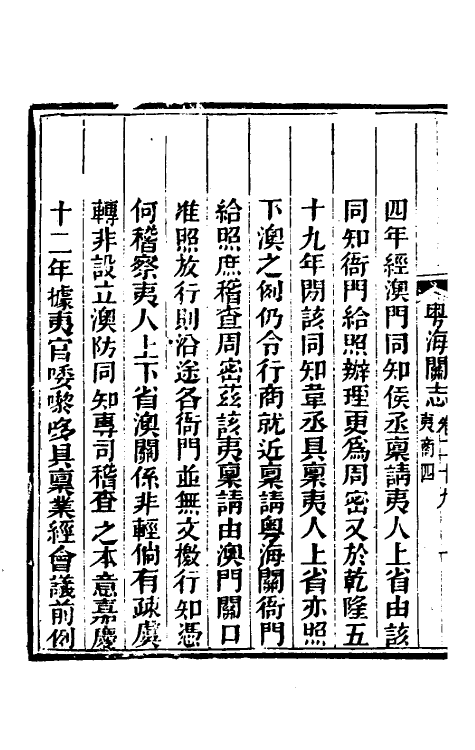 粵海關志 卷二十九 夷商四 十
四年經澳門同知侯丞稟請夷人上省由該
同知衙門給照辦理更爲周密又於乾隆五
十九年閏該同知韋丞具稟夷人上省亦照
下澳之例仍令行商就近稟請粵海關衙門
給照庶稽查周密茲該夷稟請由澳門關口
准照放行則沿途各衙門並無文檄行知憑
何稽察夷人上下省澳關係非輕倘有疎虞
轉非設立澳防同知專司稽查之本意嘉慶
十二年據夷官喽嚟哆具稟業經會議前例